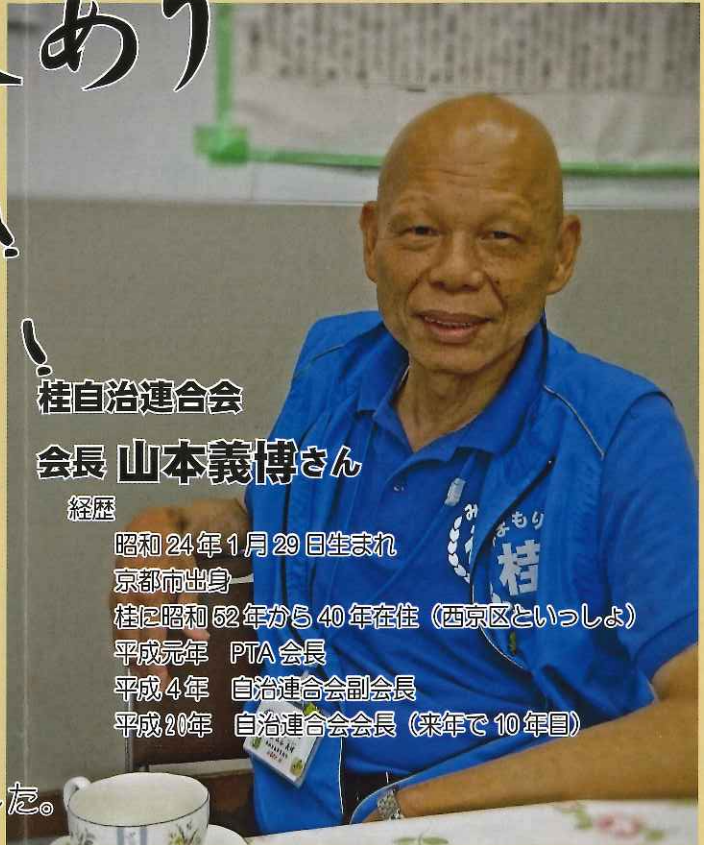 あり
桂自治連合会
会長 山本義博さん
経歴
昭和24年1月29日生まれ
京都市出身
桂に昭和52年から40年在住（西京区といっしょ）
平成元年　PTA会長
平成4年　自治連合会副会長
平成20年　自治連合会会長（来年で10年目）
まもり
桂
た。